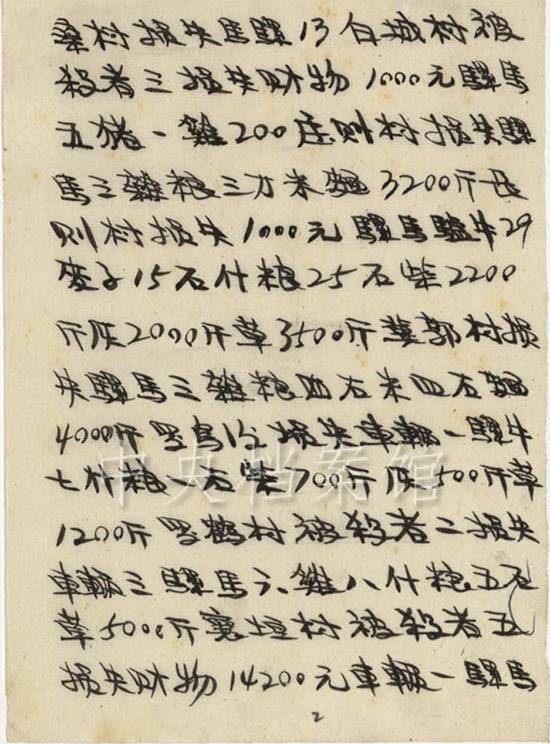 桑村损失馬騾13白城村被
殺者三损失财物1000元騾馬
五猪一雞200庄则村损失騾
馬三雜粮三万米麵3200斤長
则村损失1000元騾馬驢牛29
麦子15石什粮25石柴2200
斤灰2000斤草3500斤冀郭村损
失騾馬三雜粮四石米四石麵
4000斤罗鸟 损失車輛一騾牛
七什粮一石柴700斤灰500斤草
1200斤罗鶴村被殺者二损失
車輛三騾馬六雞八什粮五石
草5000斤襄垣村被殺者五
损失财物14200元車輛一騾馬
2
中央档案馆